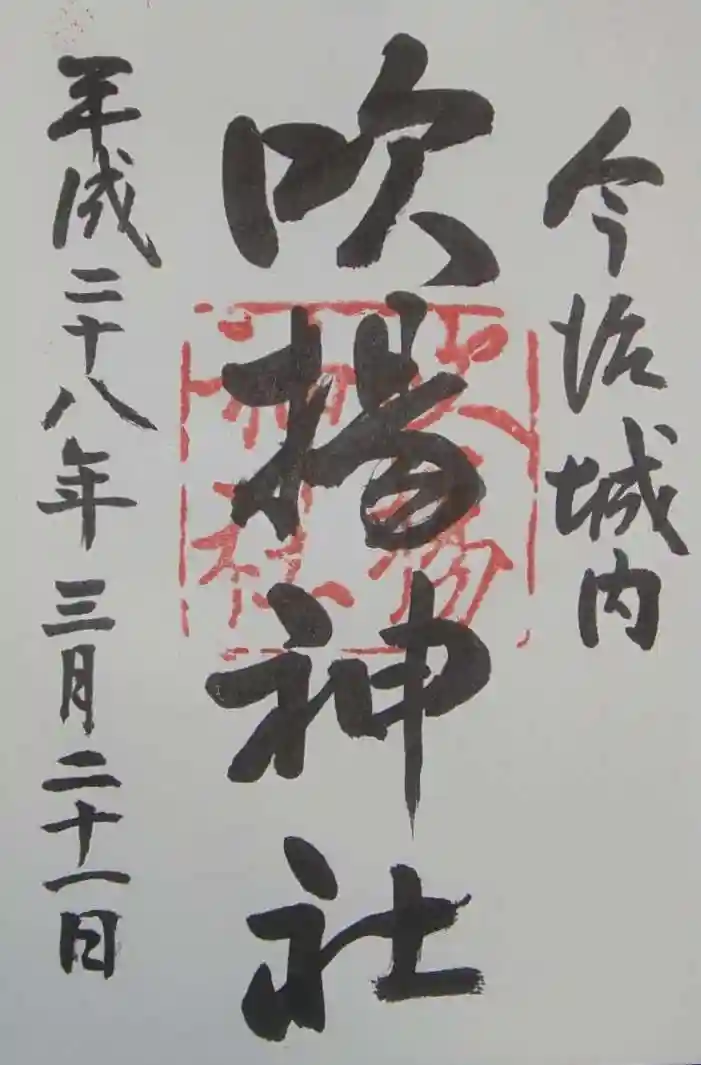 今治城内
吹揚神社
平成二十八年三月二十一日
吹揚
神社